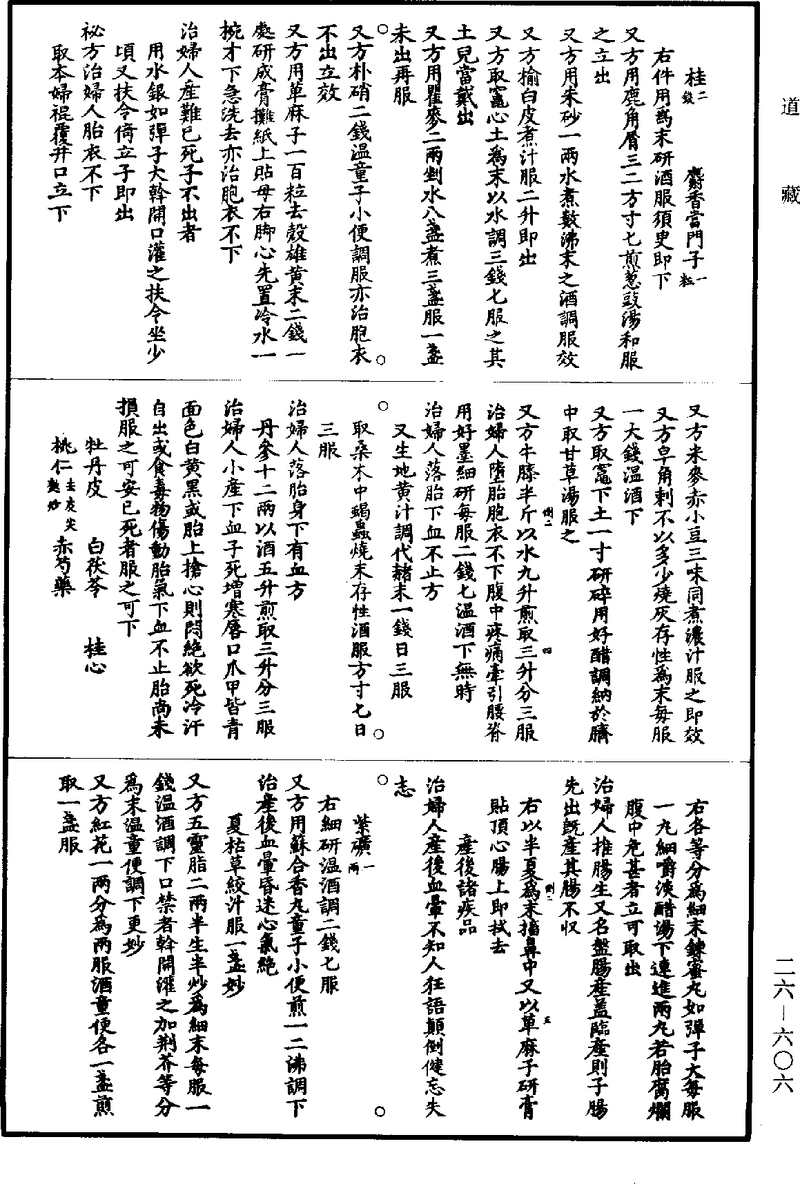 道藏
桂二錢　麝香當門子一粒
右件用爲末研酒服須臾即下
又方用鹿角屑三二方寸匕煎葱豉湯和服
之立出
又方用朱砂一兩水煮數沸末之酒調服效
又方榆白皮煮汁服二升即出
又方取竈心土爲末以水調三錢匕服之其
土兒當戴出
又方用瞿麥二兩剉水八盞煮三盞服一盞
未出再服
又方朴硝二錢温童子小便調服亦治胞衣
不出立效
又方用草麻子一百粒去殼雄黃末二錢一
處研成膏攤紙上貼母右脚心先置冷水一
椀才下急洗去亦治胞衣不下
治婦人産難已死子不出者
用水銀如彈子大幹開口灌之扶令坐少
頃又扶令倚立子即出
祕方治婦人胎衣不下
取本婦裩覆井口立下
又方米麥赤小豆三味同煮濃汁服之即效
又方皁角刺不以多少燒灰存性爲末每服
一大錢温酒下
又方取竈下土一寸研碎用好醋調納於臍
中取甘草湯服之
又方牛膝半斤以水九升煎取三升分三服
治婦人墮胎胞衣不下腹中疼痛牽引腰脊
用好墨細研每服二錢匕温酒下無時
治婦人落胎下血不止方
又生地黃汁調代赭末一錢日三服
取桑木中蝎蟲燒末存性酒服方寸匕日
三服
治婦人落胎身下有血方
丹參十二兩以酒五升煎取三升分三服
治婦人小産下血子死增寒唇口爪甲皆青
面色白黃黑或胎上搶心則悶絶欲死冷汗
自出或食毒物傷動胎氣下血不止胎尚未
損服之可安已死者服之可下
牡丹皮　白茯苓　桂心
桃仁去皮尖麩炒　赤芍藥
右各等分爲細末鍊蜜丸如彈子大每服
一丸細嚼淡醋湯下連進兩丸若胎腐爛
腹中危甚者立可取出
治婦人推腸生又名盤腸産蓋臨産則子腸
先出既産其腸不収
右以半夏爲末搐鼻中又以草麻子研膏
貼頂心腸上即拭去
産後諸疾品
治婦人産後血暈不知人狂語顛倒健忘失
志
紫礦一兩
右細研温酒調二錢匕服
又方用蘇合香丸童子小便煎一二沸調下
治産後血暈昏迷心氣絶
夏枯草絞汁服一盞妙
又方五靈脂二兩半生半炒爲細末每服一
錢温酒調下口禁者幹開灌之加荆芥等分
爲末温童便調下更妙
又方紅花一兩分爲兩服酒童便各一盞煎
取一盞服
二六―六〇六